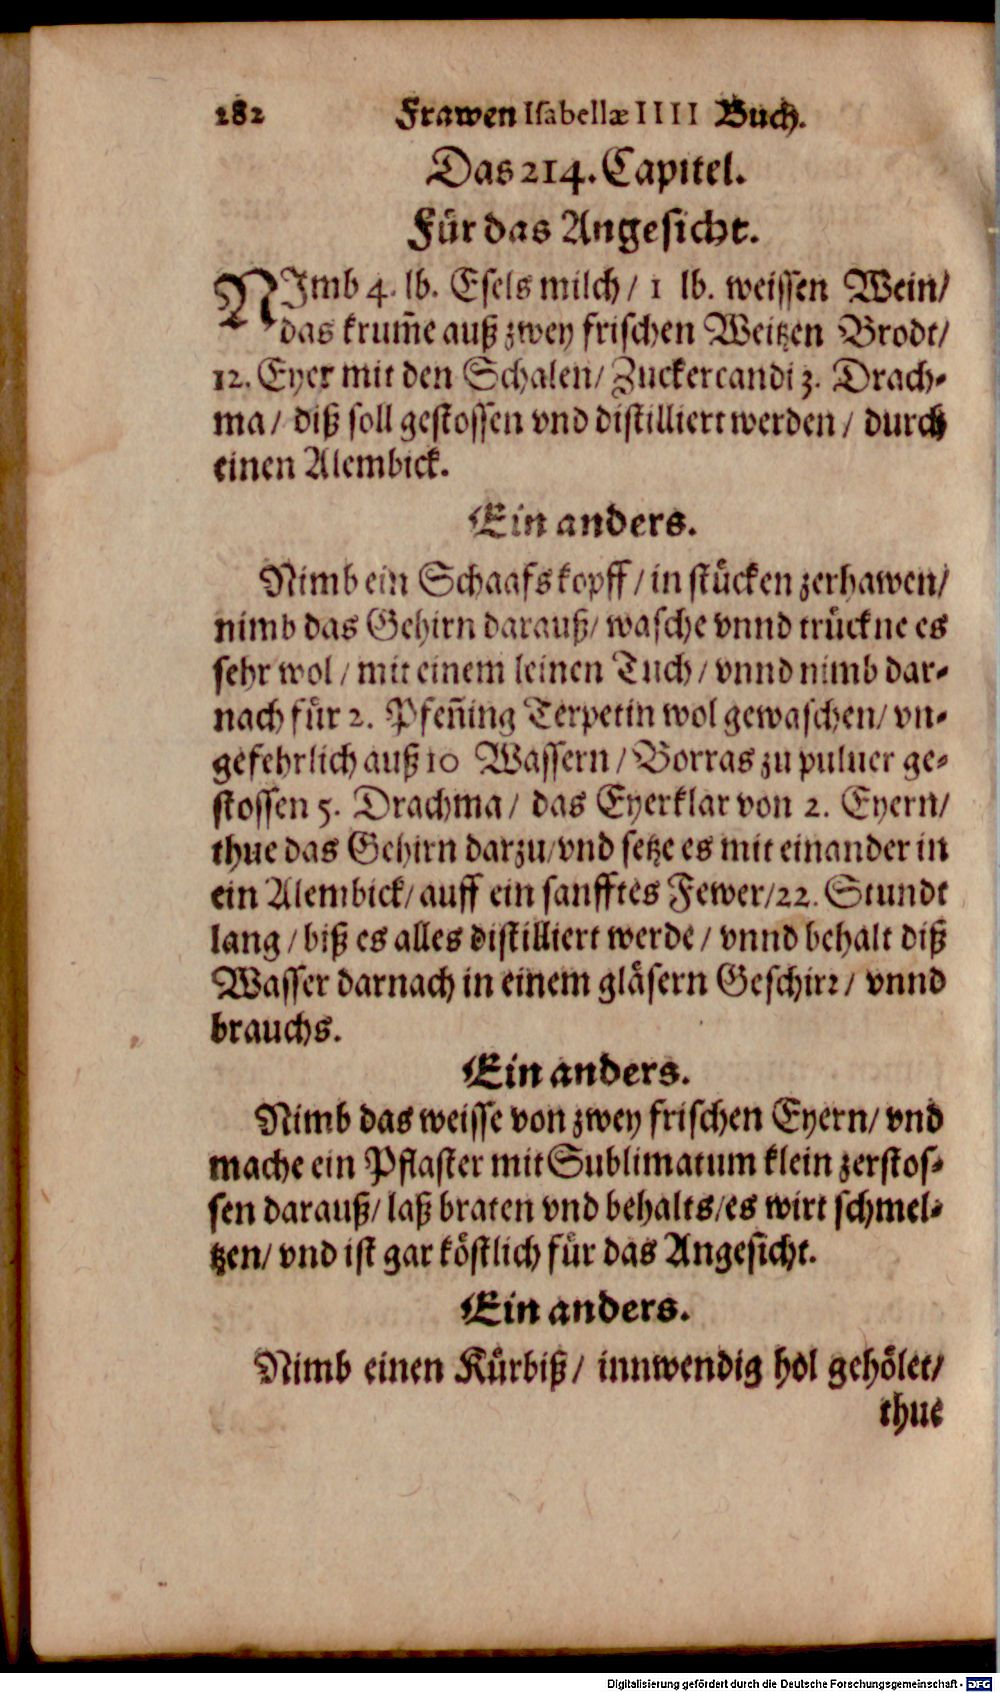 182 Frawen Isabellæ IIII Buch.
Das 214. Capitel.
Für das Angesicht.
NImb 4. lb. Esels milch / 1 lb. weissen Wein /
das krum̃e auß zwey frischen Weitzen Brodt /
12. Eyer mit den Schalen / Zuckercandi 3. Drach-
ma / diß soll gestossen vnd distilliert werden / durch
einen Alembick.
Ein anders.
Nimb ein Schaafskopff / in stücken zerhawen /
nimb das Gehirn darauß / wasche vnnd trückne es
sehr wol / mit einem leinen Tuch / vnnd nimb dar-
nach für 2. Pfen̄ing Terpetin wol gewaschen / vn-
gefehrlich auß 10 Wassern / Borras zu puluer ge-
stossen 5. Drachma / das Eyerklar von 2. Eyern /
thue das Gehirn darzu / vnd setze es mit einander in
ein Alembick / auff ein sanfftes Fewer / 22. Stundt
lang / biß es alles distilliert werde / vnnd behalt diß
Wasser darnach in einem gläsern Geschirr / vnnd
brauchs.
Ein anders.
Nimb das weisse von zwey frischen Eyern / vnd
mache ein Pflaster mit Sublimatum klein zerstos-
sen darauß / laß braten vnd behalts / es wirt schmel-
tzen / vnd ist gar köstlich für das Angesicht.
Ein anders.
Nimb einen Kürbiß / innwendig hol gehölet /
thue
Digitalisierung gefördert durch die Deutsche Forschungsgemeinschaft - DFG